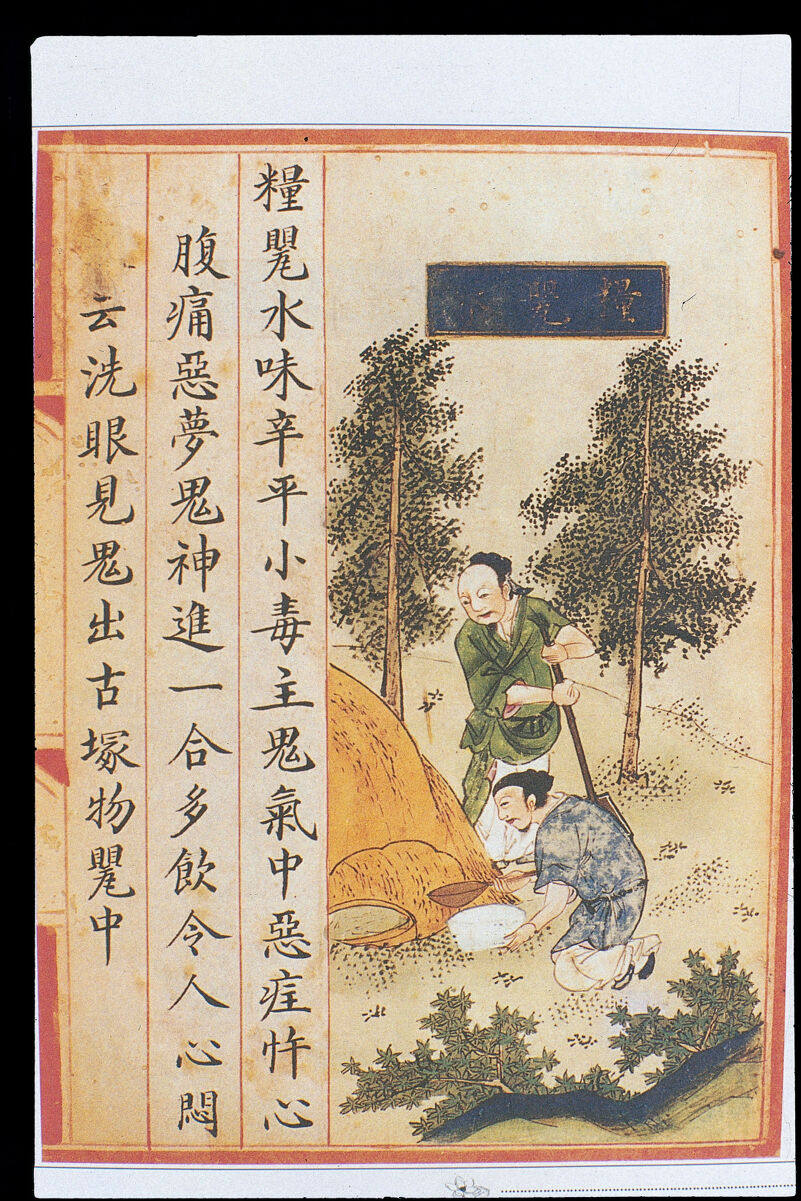 糧罌
糧罌水味辛平小毒主鬼氣中惡疰忤心
腹痛惡夢鬼神進一合多飲令人心悶
云洗眼見鬼出古塚物罌中